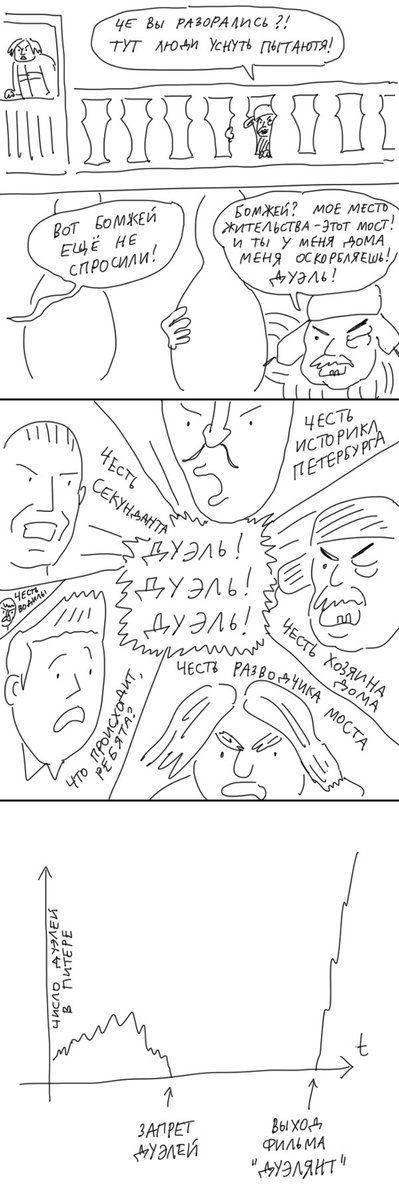 ЧЕ ВЫ РАЗОРАЛИСЬ?!
ТУТ ЛЮДИ УСНУТЬ ПЫТАЮТЯ!
ВОТ БОМЖЕЙ
ЕЩЁ НЕ
СПРОСИЛИ!
БОМЖЕЙ? МОЕ МЕСТО
ЖИТЕЛЬСТВА-ЭТОТ МОСТ!
И ТЫ У МЕНЯ ДОМА
МЕНЯ ОСКОРБЛЯЕШЬ!
ДУЭЛЬ!
ЧЕСТЬ
ИСТОРИКА
ПЕТЕРБУРГА
ЧЕСТЬ
СЕКУНДАНТА
ДУЭЛЬ!
ДУЭЛЬ!
ДУЭЛЬ!
ЧЕСТЬ
ВОДИЛЫ
ЧЕСТЬ ХОЗЯИНА
ДОМА
ЧТО ПРОИСХОДИТ,
РЕБЯТА?
ЧЕСТЬ РАЗВОДЧИКА
МОСТА
ЧИСЛО ДУЭЛЕЙ
В ПИТЕРЕ
t
ЗАПРЕТ
ДУЭЛЕЙ
ВЫХОД
ФИЛЬМА
"ДУЭЛЯНТ"